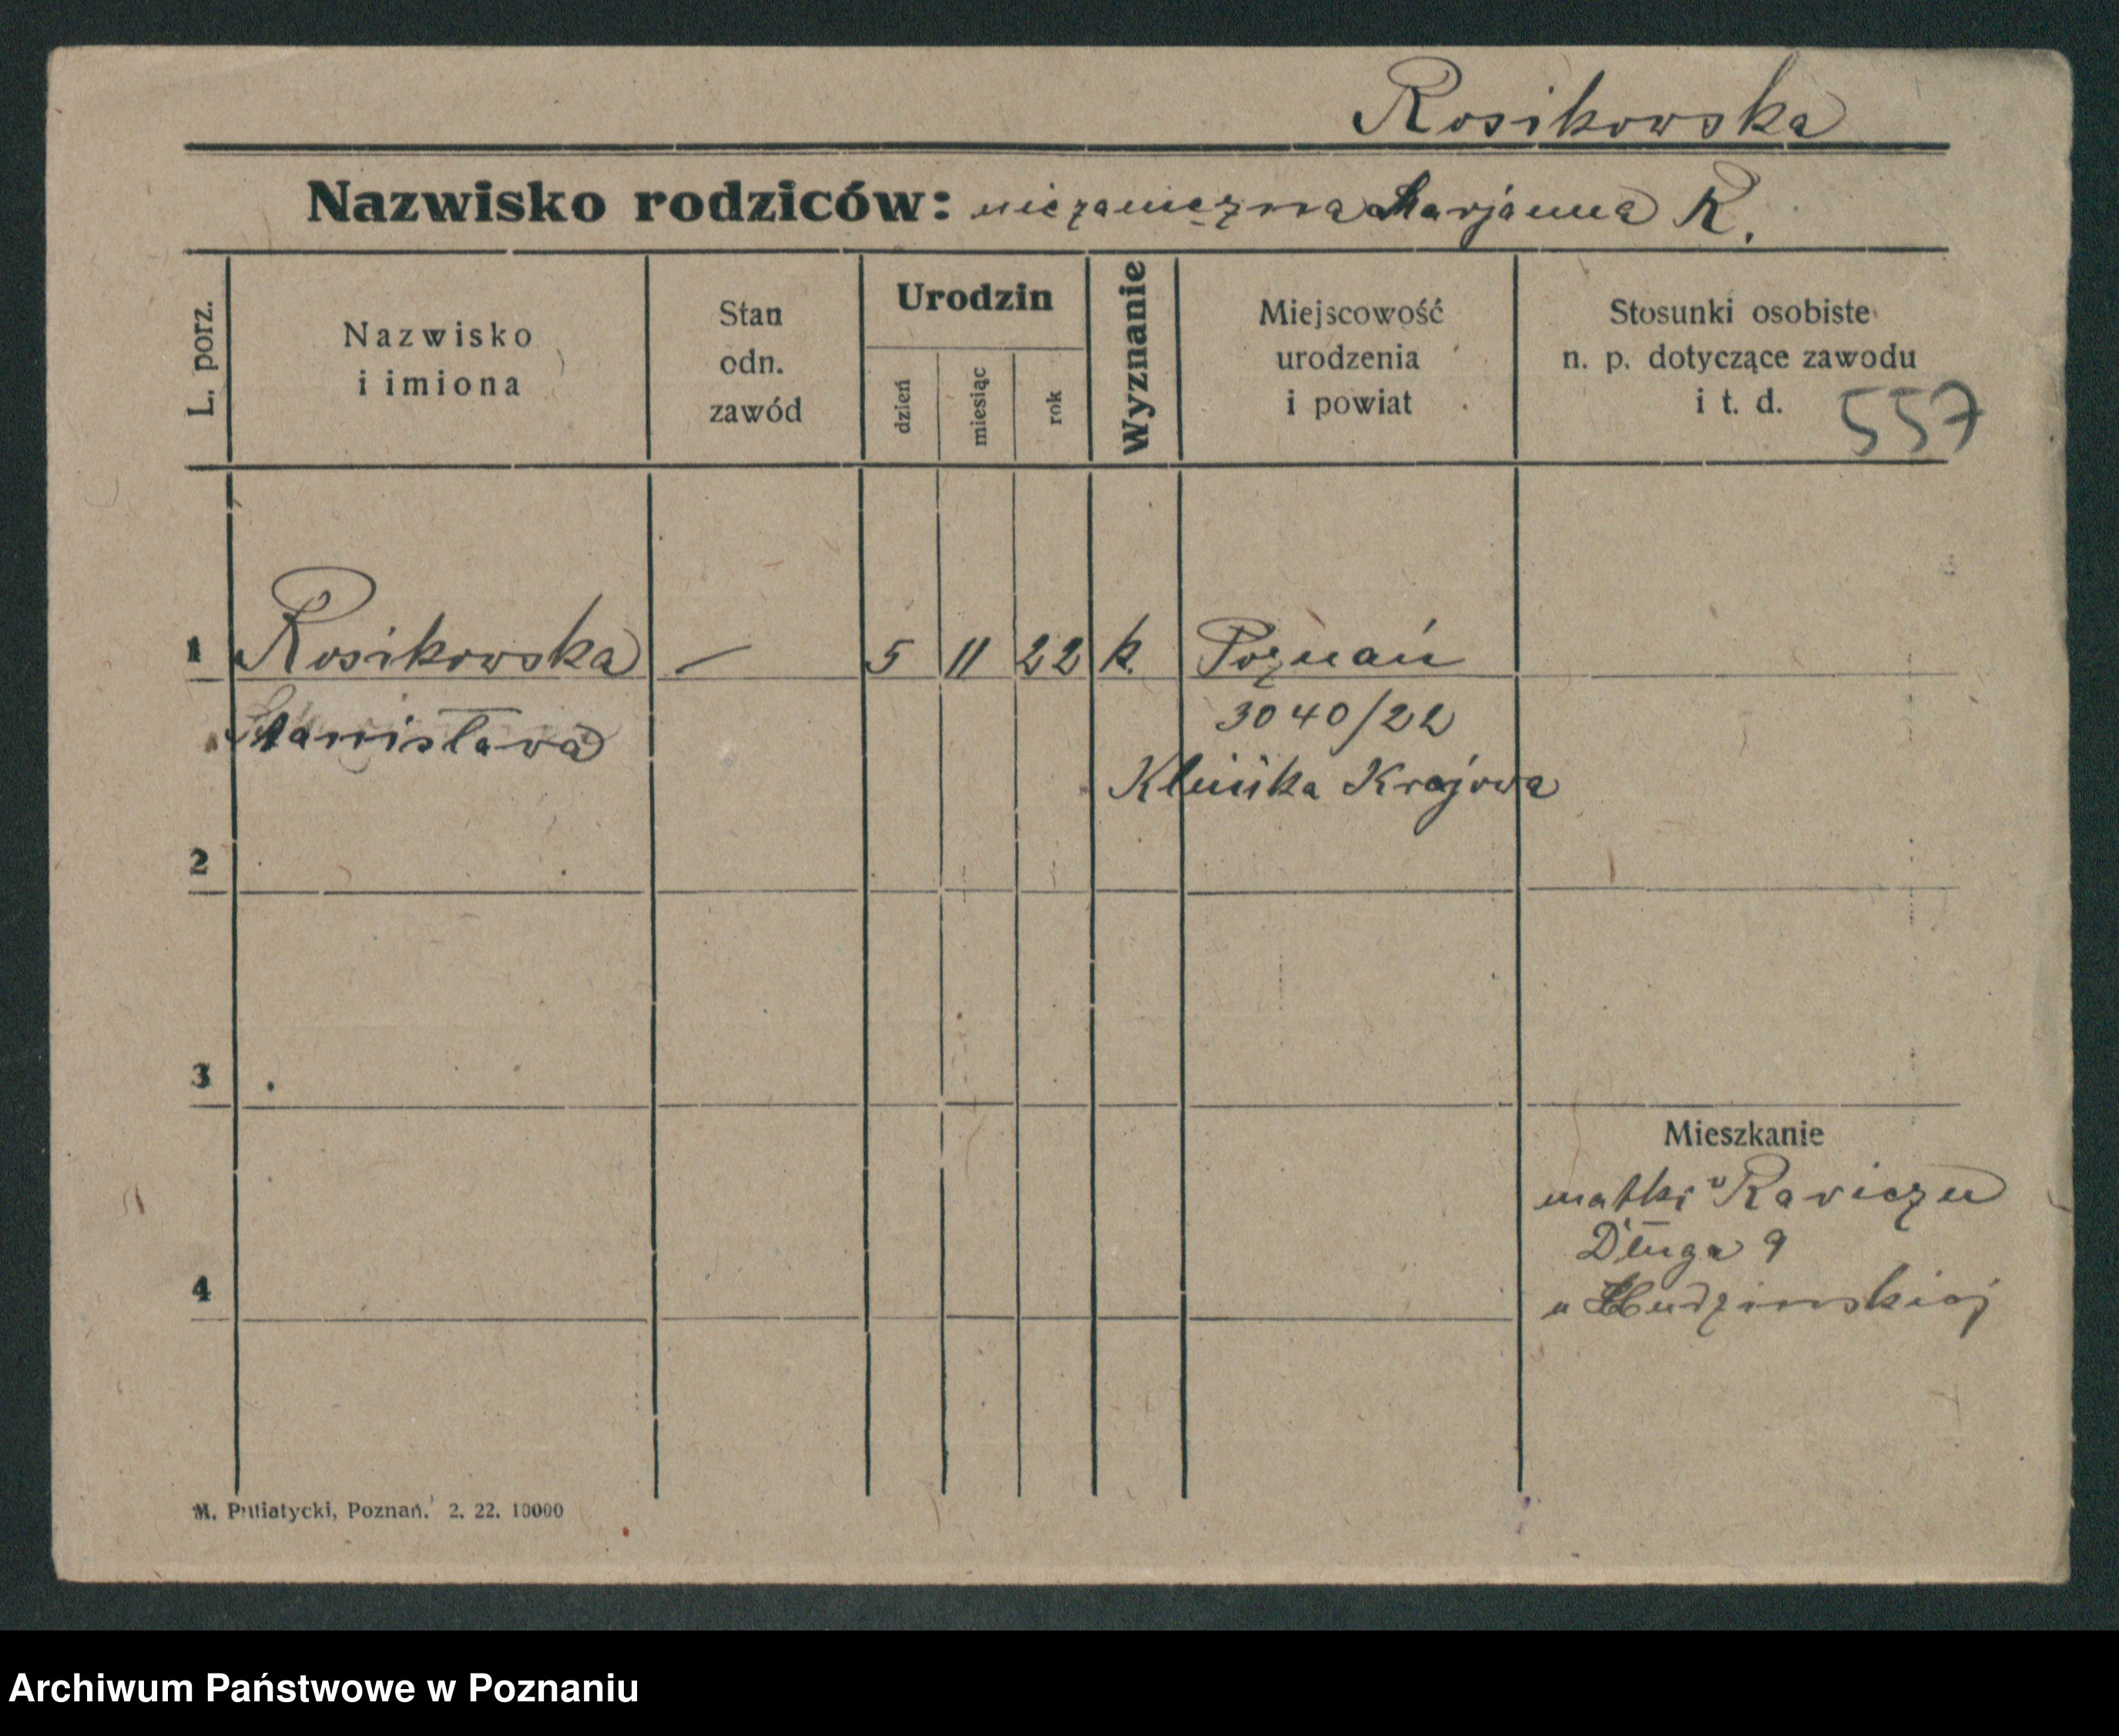 Rosikowska
Nazwisko rodziców: niezamężna Marjanna R.
L. porz.
Nazwisko
i imiona
Stan
odn.
zawód
Urodzin
dzień
miesiąc
rok
Wyznanie
Miejscowość
urodzenia
i powiat
Stosunki osobiste
n. p. dotyczące zawodu
i t. d.
557
1 Rosikowska — 5 11 22 k. Poznań
Stanisława 3040/22
Klinika Krajowa
2
3
Mieszkanie
matki w Rawiczu
Długa 9
4
u
M. Putiatycki, Poznań. 2. 22. 10000
Archiwum Państwowe w Poznaniu